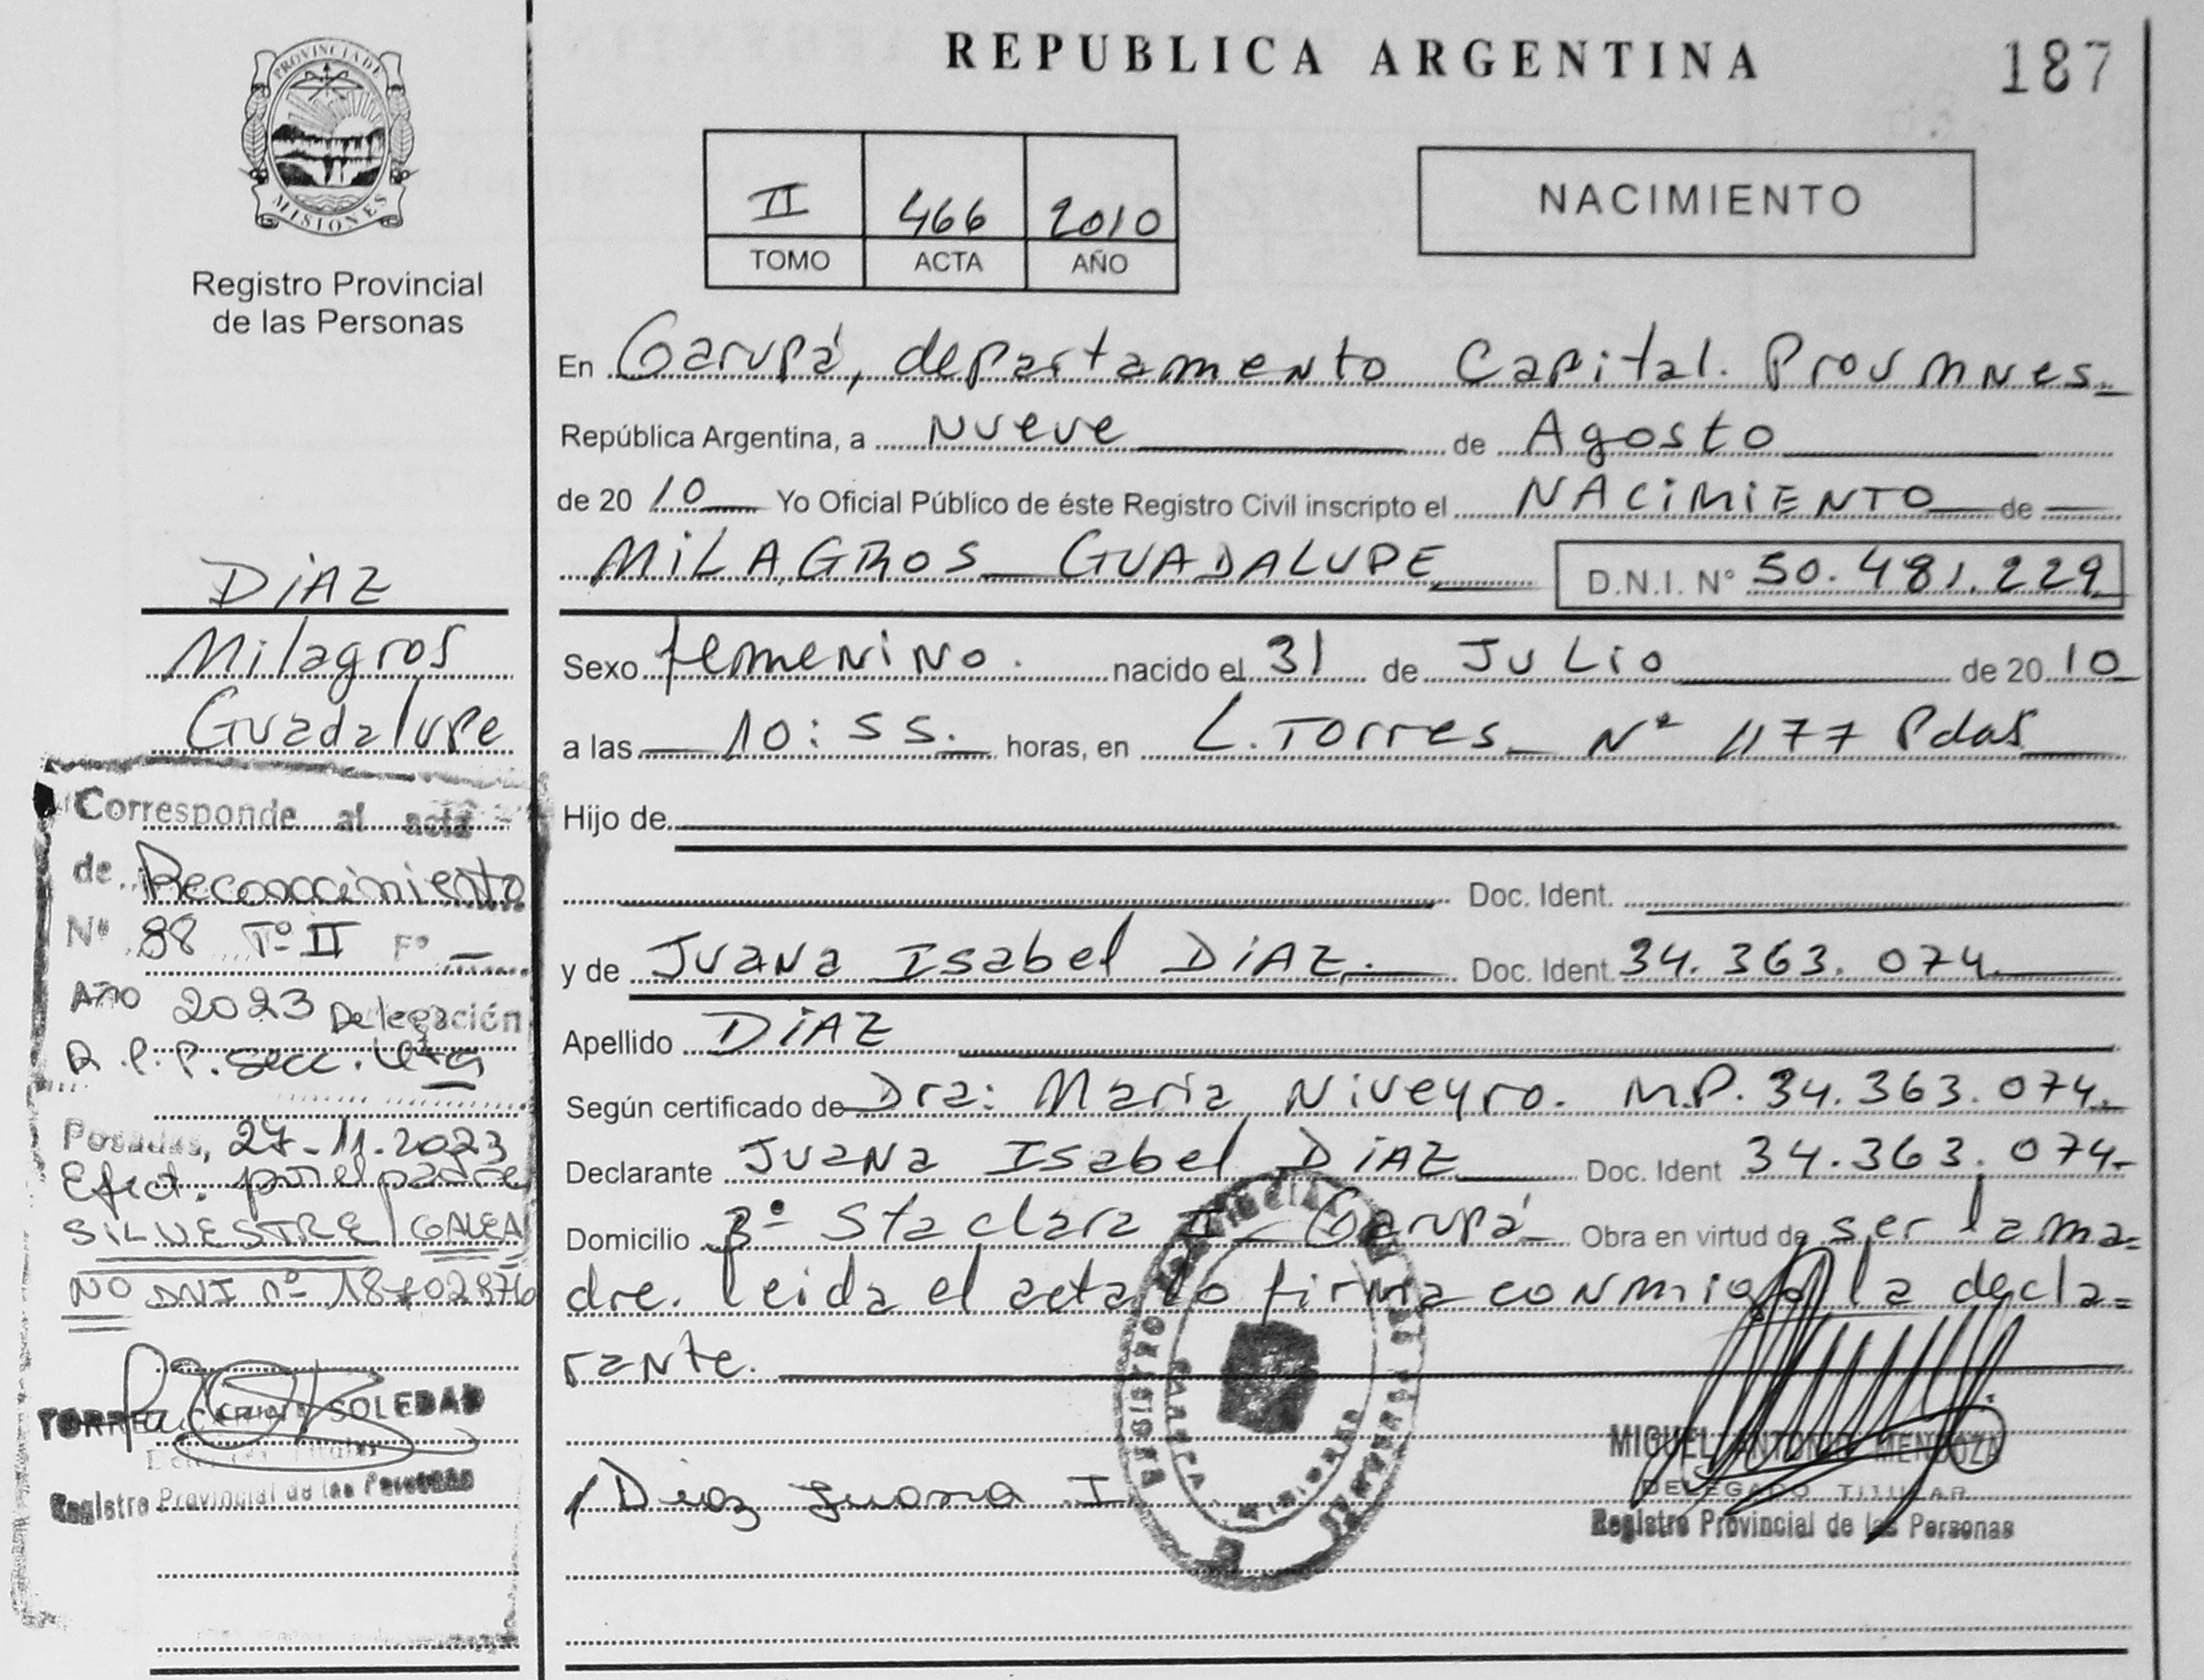 REPUBLICA ARGENTINA
187
PROVINCIA DE
MISIONES
Registro Provincial
de las Personas
II 466 2010
TOMO ACTA AÑO
NACIMIENTO
En Garupá, departamento Capital. Prov Mnes.
República Argentina, a Nueve de Agosto
de 20 10 Yo Oficial Público de éste Registro Civil inscripto el NACIMIENTO de
MILAGROS GUADALUPE D.N.I. N° 50.481.229
Sexo femenino. nacido el 31 de Julio de 20 10
a las 10:55. horas, en L. Torres N° 1177 Pdas
Hijo de
Doc. Ident.
y de Juana Isabel DIAZ. Doc. Ident. 34.363.074
Apellido DIAZ
Según certificado de Dra: Maria Niveyro. M.P. 34.363.074.
Declarante Juana Isabel DIAZ Doc. Ident 34.363.074-
Domicilio Bº Sta clara II - Garupá Obra en virtud de ser la ma=
dre. leida el acta lo firma conmigo la decla=
rante.
Diaz Juana I
MIGUEL ANTONIO MENDOZA
DELEGADO TITULAR
Registro Provincial de las Personas
DIAZ
Milagros
Guadalupe
Corresponde al acta
de Reconocimiento
Nº 88 Tº II Fº —
Año 2023 Delegación
R.P.P. Secc. 4ta
Posadas, 27-11-2023
Efect. por el padre
SILVESTRE GALEA
NO DNI nº
TORRE SOLEDAD
Registro Provincial de las Personas